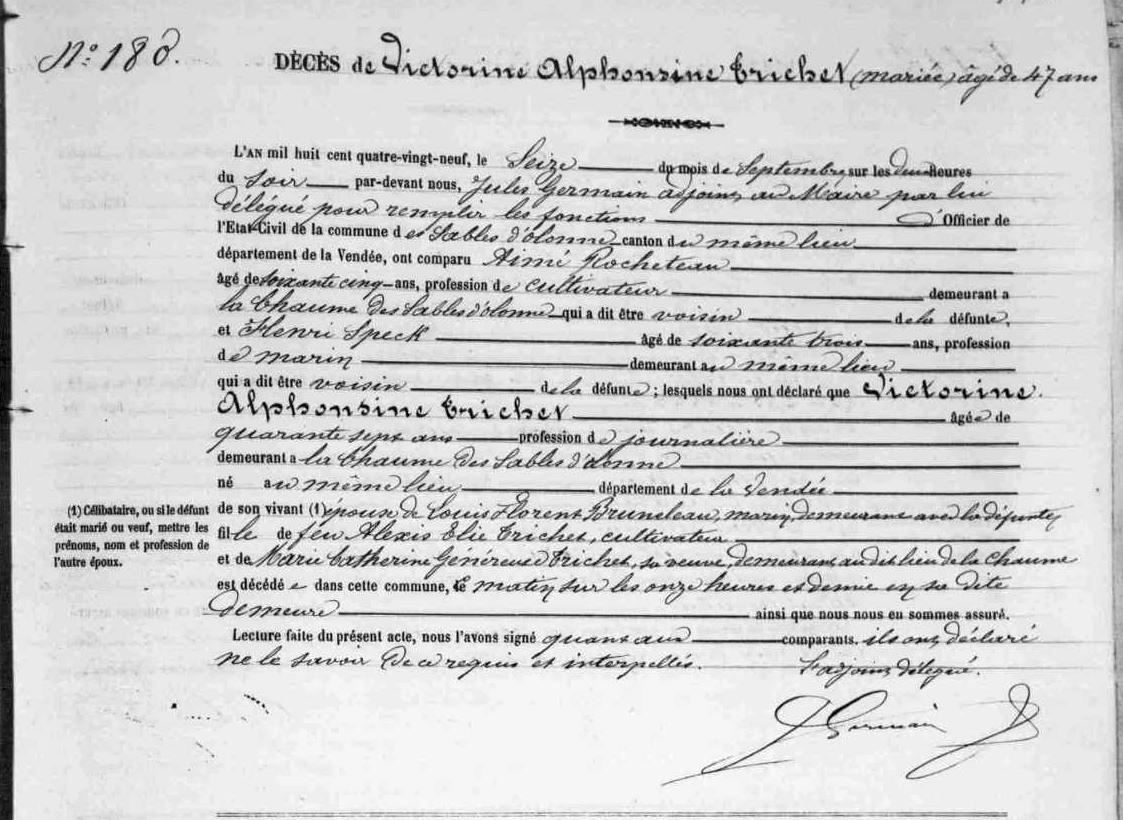 N° 188.
DÉCÈS de Victorine Alphonsine Trichet (mariée) âgé de 47 ans
L'AN mil huit cent quatre-vingt-neuf, le Seize du mois de Septembre, sur les deux heures
du Soir par-devant nous, Jules Germain adjoint au Maire par lui
délégué pour remplir les fonctions d'Officier de
l'Etat-Civil de la commune des Sables d'olonne canton du même lieu
département de la Vendée, ont comparu Aimé Rocheteau
âgé de soixante cinq ans, profession de cultivateur demeurant a
la Chaume des Sables d'olonne qui a dit être voisin de la défunte,
et Henri Speck âgé de soixante trois ans, profession
de marin demeurant au même lieu
qui a dit être voisin de la défunte ; lesquels nous ont déclaré que Victorine
Alphonsine Trichet âgée de
quarante sept ans profession de journalière
demeurant a la Chaume des Sables d'olonne
né au même lieu département de la Vendée
(1) Célibataire, ou si le défunt
était marié ou veuf, mettre les
prénoms, nom et profession de
l'autre époux.
de son vivant (1) épouse de Louis Florent Bruneleau, marin, demeurant avec la défunte,
fille de feu Alexis Elie Trichet, cultivateur
et de Marie Catherine Généreuse Trichet, sa veuve, demeurant au dit lieu de la Chaume
est décédée dans cette commune, ce matin sur les onze heures et demie en sa dite
demeure ainsi que nous nous en sommes assuré.
Lecture faite du présent acte, nous l'avons signé quant aux comparants. ils ont déclaré
ne le savoir de ce requis et interpellés. L'adjoint délégué.
J Germain